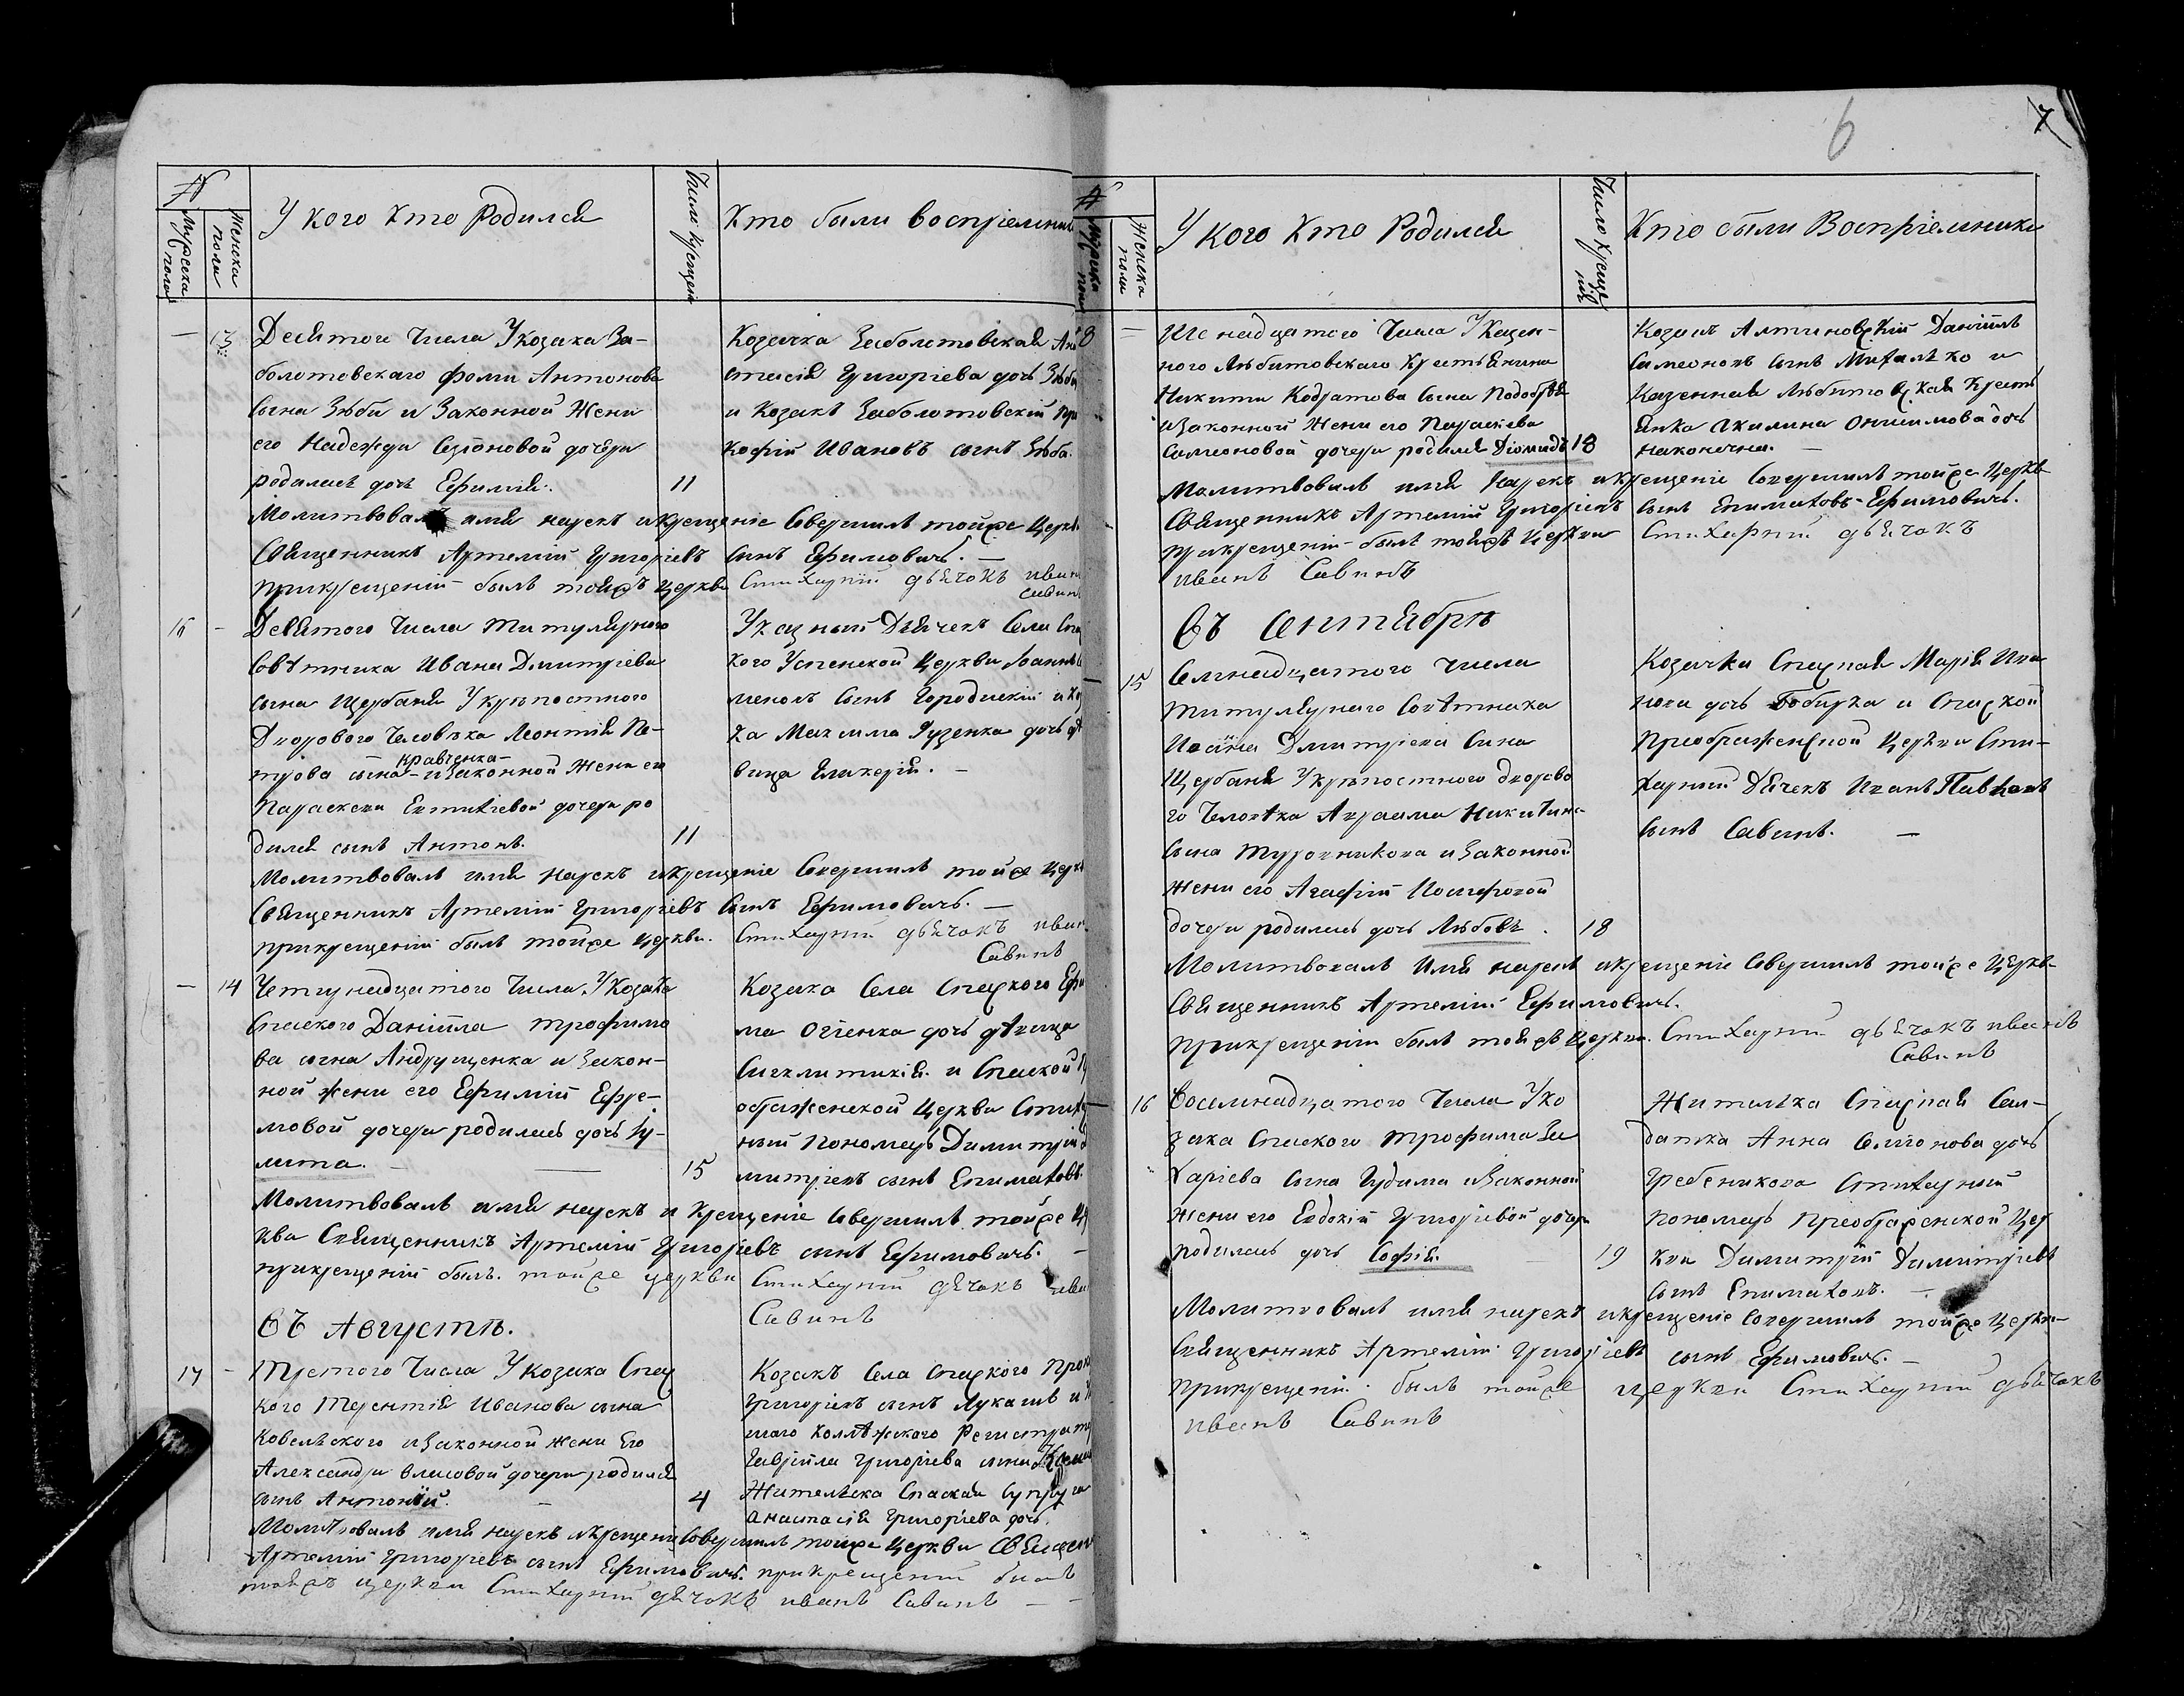 6
7
№
Мужска пола
Женска пола
У кого кто Родился
Число крещенія
Кто были воспріемни
13
Десятого Числа У козака За-
болотовскаго Фоми Антонова
сына Зѣби и Законной Жени
его Надежди Семіоновой дочери
родилась дочь Ефимія.
11
Козачка Заболотовская Ана
стасія Григоріева дочь Зѣби
и Козакъ Заболотовскій Про
кофій Ивановъ сынъ Зѣба.
Молитвовалъ имя нарекъ икрещеніе Совершилъ тойже Церкви
Священникъ Артемій Григоріевъ Сынъ Ефимовичъ.
прикрещеніи былъ тойжъ Церкви Стихарний дьячокъ иван
Савинъ
16
Девятого Числа Титулярного
Совѣтника Ивана Дмитріева
сына Щербаня У крѣпостного
Дворового Человѣка Леонтія Пе-
кравченка
трова сына и Законной Жени его
Параскеви Евтихіевой дочери ро
дился сынъ Антонъ.
11
Указный Дячекъ Села Спа
кого Успенской Церкви Іоаннъ
меновъ Сынъ Городискій и Ко
ка Максима Рузенка дочь дѣ
вица Гликерія.
Молитвовалъ имя нарекъ икрещеніе Совершилъ тойже Церк
Священникъ Артемій Григоріевъ Сынъ Ефимовичъ.
прикрещеніи былъ тойже Церкви. Стихарний дьячокъ иван
Савинъ
14
Четирнадцатого Числа У Козака
Спаского Даніила трофимо
ва сына Андрущенка и Закон-
ной жени его Ефимій Ефре-
мовой дочери родилась дочь Іу-
лита.
15
Козака Села Спаского Ефи
ма Огіенка дочь дѣвица
Сигклитикія и Спаской Пр
ображенской Церкви Стиха
ный пономарь Димитрій
митріевъ сынъ Епиматовъ.
Молитвовалъ имя нарекъ и крещеніе Совершилъ тойже Це
кви Священникъ Артемій Григоріевъ сынъ Ефимовичъ.
прикрещеніи былъ тойже церкви Стихарний дячокъ иван
Савинъ
Въ Августѣ.
17
Третого Числа У козака Спас
кого Терентія Иванова сына
Ковельского изаконной жени Его
Александри власовой дочери родился
сынъ Антоній.
4
Козакъ Села Спаского Прок
Григоріевъ сынъ Лукашъ и
шаго Коллѣжского Регистрато
Гавріила Григоріева сына
Жителька Спаская Супруга
Анастасія Григоріева дочь.
Молитвовалъ имя нарекъ икрещеніе Совершилъ тойже Церкви Священ
Артемій Григоріевъ сынъ Ефимовичъ. прикрещеніи билъ
тойжъ церкви Стихарний дячокъ иванъ Савинъ
№
Мужска пола
Женска пола
У кого кто Родился
Число Креще
нія
Кто были Воспріемники
8
Шенадцатого Числа У Казен-
ного Любитовскаго Крестьянина
Никити Кодратова Сына Подобрѣя
изаконной Жени его Параскева
Симеоновой дочери родился Діомидъ
18
Козакъ Алтиновскій Даніилъ
Симеоновъ сынъ Михалѣко и
Казенная Любитовская Кресть
янка Акилина Онисимова дочь
наконечна.
Молитвовалъ имя Нарекъ икрещеніе Совершилъ тойже Церкв
Священникъ Артемій Григоріевъ Сынъ Епиматовъ-Ефимовичъ.
прикрещеніи былъ тойжъ Церкви Стихарний дьячокъ
иванъ Савинъ
Въ Сентябрѣ
15
Семнадцатого Числа
Титулярнаго Совѣтника
Ивана Дмитріева Сина
Щербаня У крѣпостного дворово
го Человѣка Авраама Никитина
Сына Турочникова и Законной
жени его Агафіи Іосифовой
дочери родилась дочь Любовь.
18
Козачка Спаская Марія Ива
нова дочь Бобирка и Спаской
Преображенской Церкви Сти-
харний Дячекъ Иванъ Павловъ
Сынъ Савинъ.
Молитвовалъ Имя нарекъ икрещеніе Совершилъ тойже Церкв-
Священникъ Артемій Ефимовичъ.
прикрещеніи былъ тойжъ Церкви. Стихарний дьячокъ иванъ
Савинъ
16
Восемнадцатого Числа У ко
зака Спаского трофима За
харіева Сына Гудима изаконной
жени его Евдокій Григоріевой дочери
родилась дочь Софія.
19
Жителька Спаская Сол-
датка Анна Семіонова дочь
Гребеникова Стихарный
пономарь Преображенской Цер
кви Димитрій Димитріевъ
Сынъ Епиматовъ.
Молитвовалъ имя нарекъ икрещеніе Совершилъ тойже Церкв-
Священникъ Артемій Григоріевъ сынъ Ефимовичъ.
прикрещеніи былъ тойже церкви Стихарний дьячокъ
иванъ Савинъ